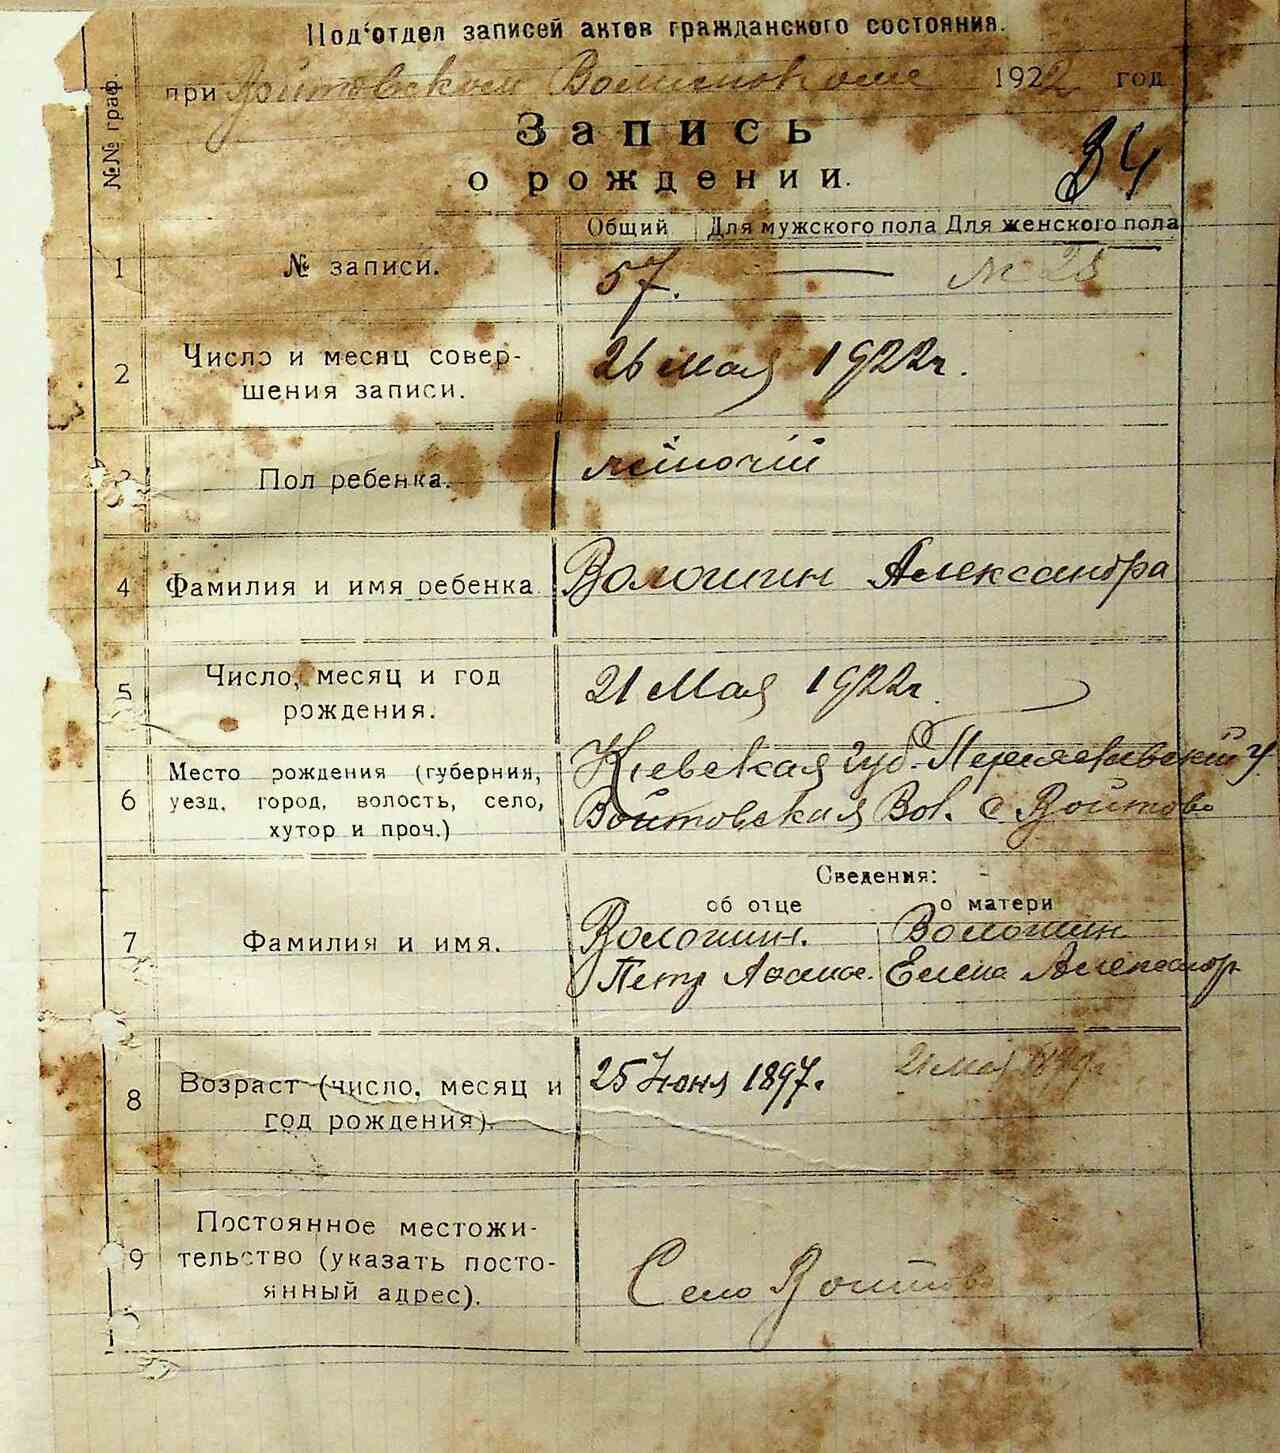 Под'отдел записей актов гражданского состояния.
при Войтовском Волисполкоме 1922 год
№№ граф.
Запись
о рождении.
34
Общий Для мужского пола Для женского пола
1 № записи. 57. — № 28
2 Число и месяц совер-
шения записи. 26 Мая 1922 г.
3 Пол ребенка. жіночій
4 Фамилия и имя ребенка Волошин Александра
5 Число, месяц и год
рождения. 21 Мая 1922 г.
6 Место рождения (губерния,
уезд, город, волость, село,
хутор и проч.)
Киевская губ. у.
Войтовская Вол. с Войтово
Сведения:
об отце о матери
7 Фамилия и имя. Волошин. Волошин
Петр Елена Александр
8 Возраст (число, месяц и
год рождения). 25 Июня 1897. 21 мая
9 Постоянное местожи-
тельство (указать посто-
янный адрес). Село Войтово